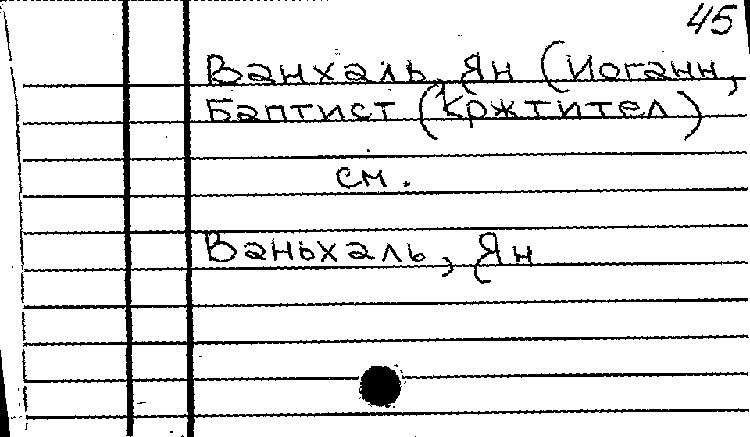 45
Ванхаль, Ян (Иоганн,
Баптист (Кржтител)
см.
Ваньхаль, Ян